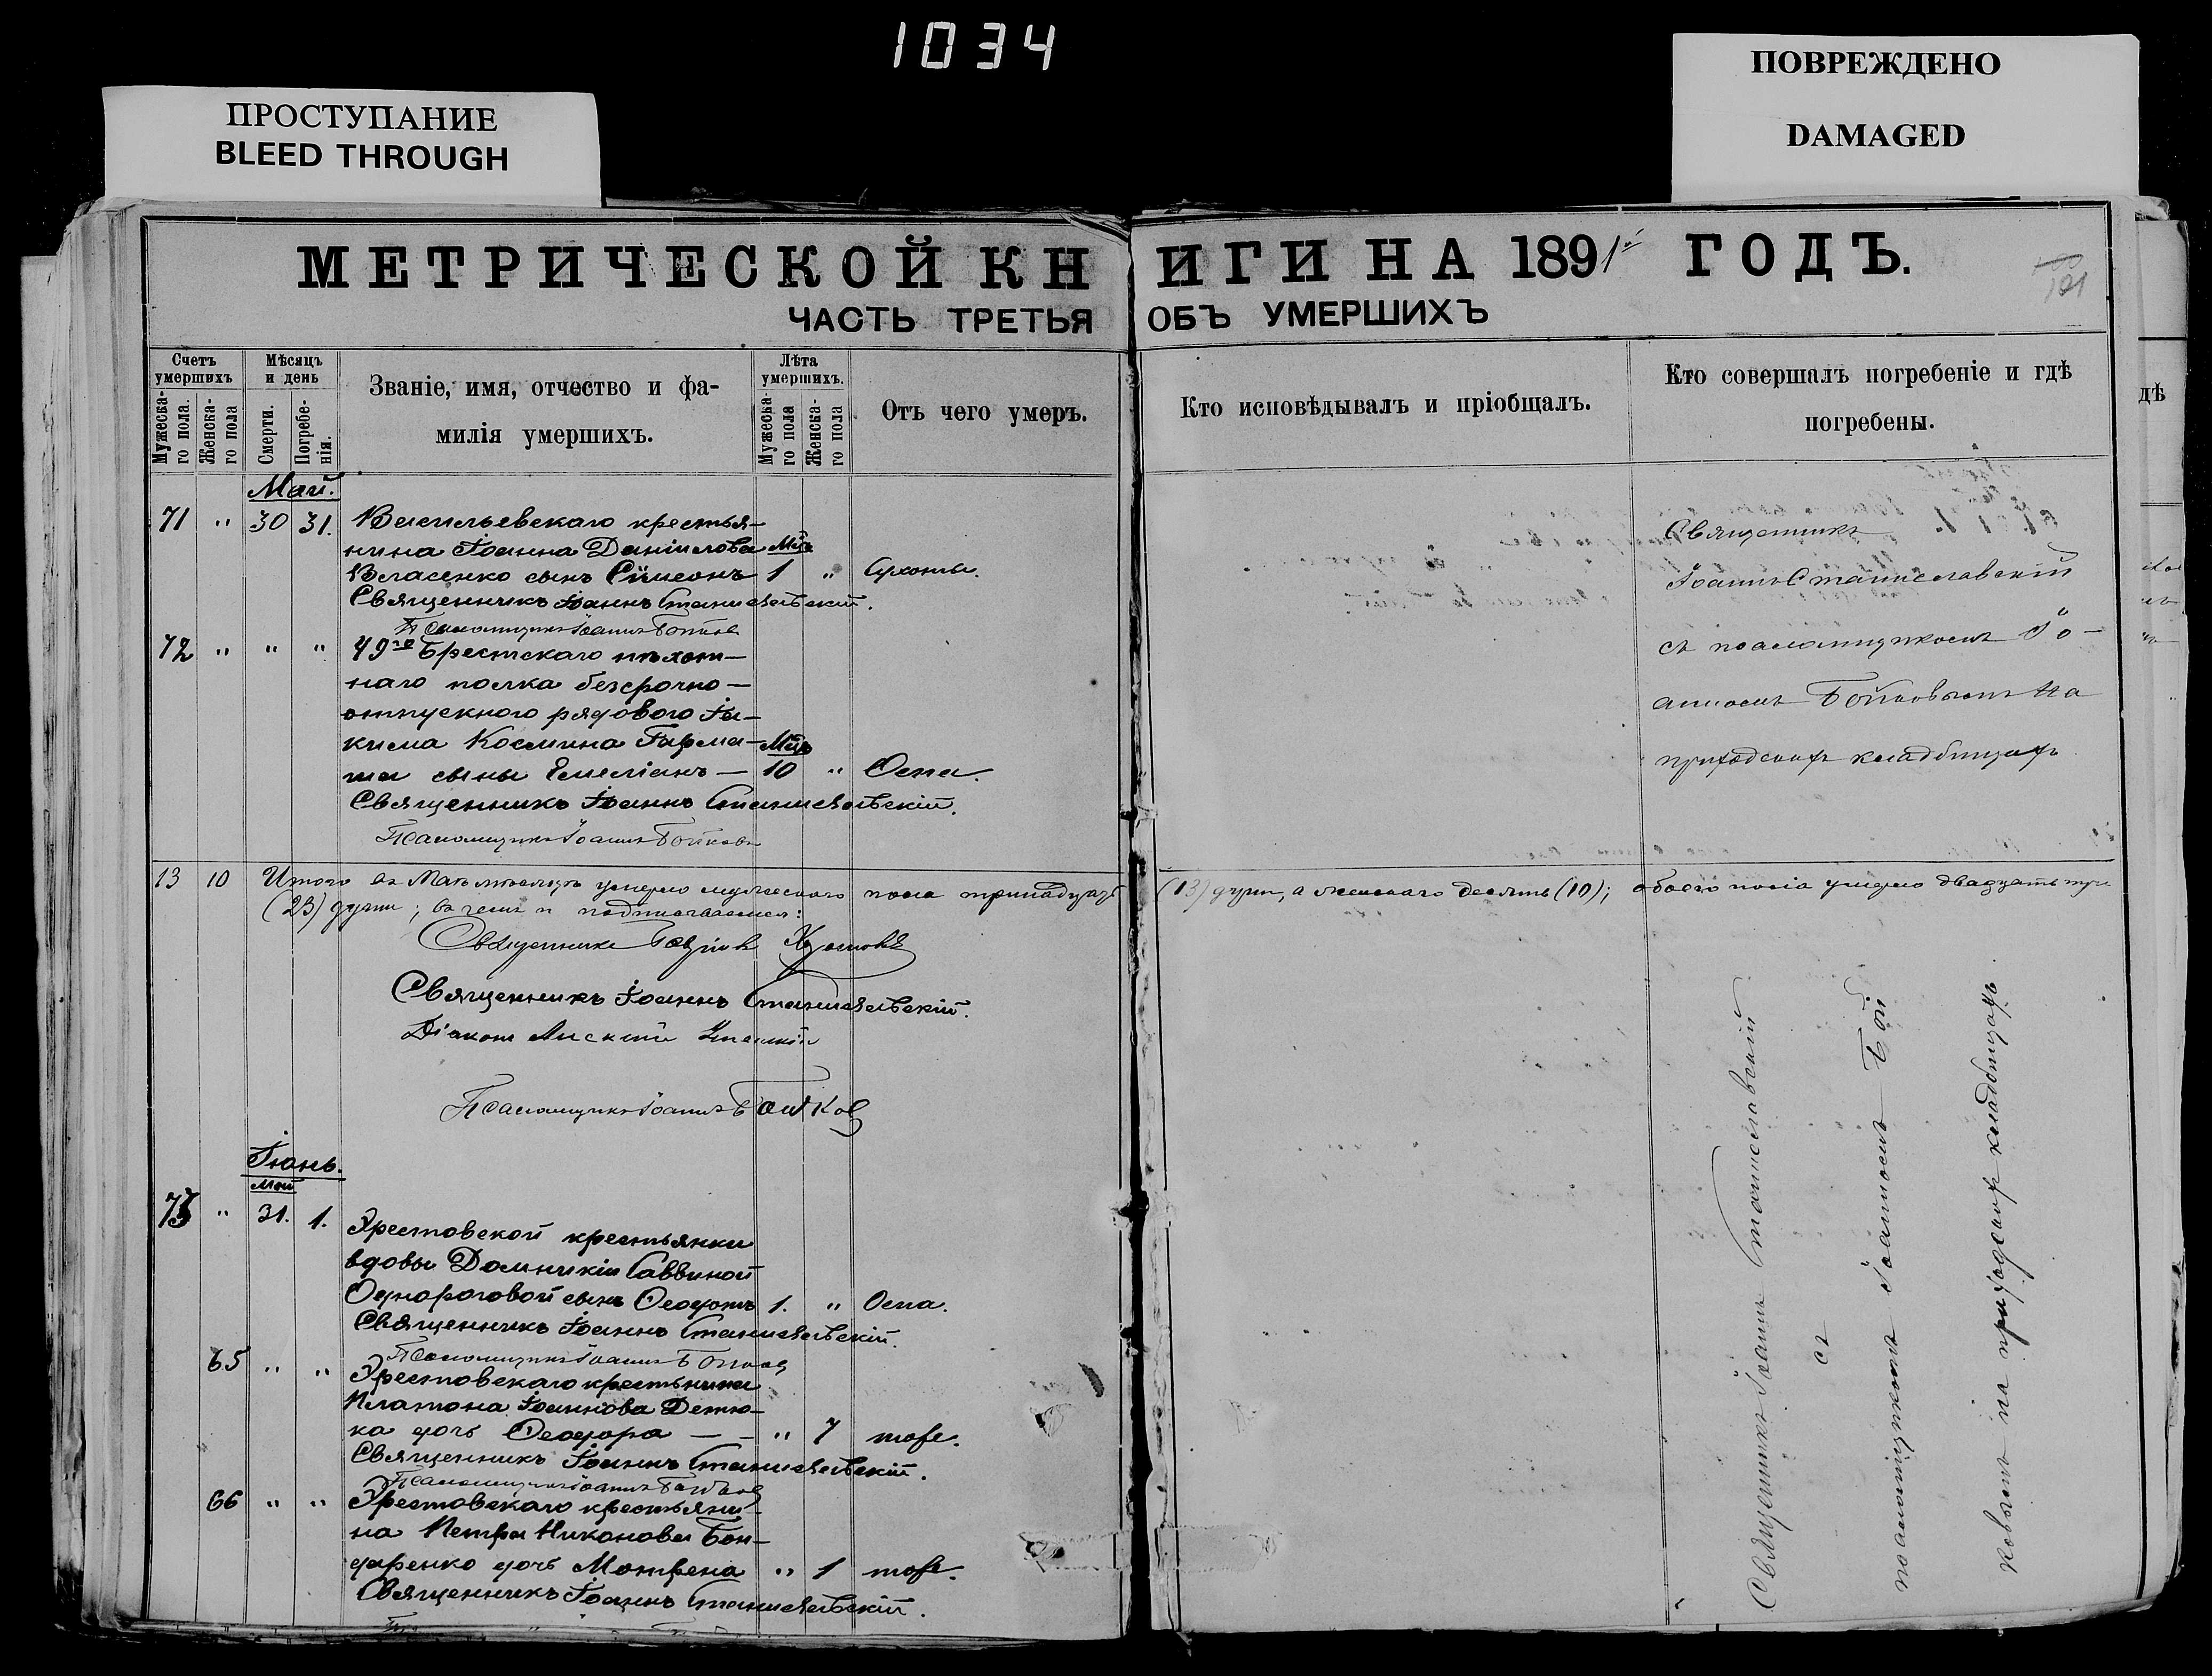 1034
ПРОСТУПАНИЕ
BLEED THROUGH
ПОВРЕЖДЕНО
DAMAGED
МЕТРИЧЕСКОЙ КНИГИ НА 1891й ГОДЪ.
101
ЧАСТЬ ТРЕТЬЯ ОБЪ УМЕРШИХЪ
Счетъ умершихъ
Мужеска-го пола.
Женска-го пола
Мѣсяцъ и день
Смерти.
Погребе-нія.
Званіе, имя, отчество и фа-
милія умершихъ.
Лѣта умершихъ.
Мужеска-го пола
Женска-го пола
Отъ чего умеръ.
Кто исповѣдывалъ и пріобщалъ.
Кто совершалъ погребеніе и гдѣ
погребены.
Май.
71 " 30 31. Васильевскаго крестья-
нина Іоанна Даніилова Мѣс.
Власенко сынъ Сѵмеонъ 1 " Сухоты.
Священникъ Іоаннъ Станиславскій.
Псаломщикъ Іоаннъ Бойковъ
72 " " " 49го Брестскаго пѣхот-
наго полка безсрочно-
отпускного рядового Іа-
кима Космина Гарма- Мѣс.
ша сынъ Емеліанъ — 10 " Оспа.
Священникъ Іоаннъ Станиславскій.
Псаломщикъ Іоаннъ Бойковъ
Священникъ
Іоаннъ Станиславскій
съ псаломщикомъ Іо-
анномъ Бойковымъ на
приходскомъ кладбищѣ
13 10 Итого въ Маѣ мѣсяцѣ умерло мужескаго пола тринадцать (13) душъ, а женскаго десять (10); обоего пола умерло двадцать три
(23) души; въ чемъ и подписываемся:
Священникъ
Священникъ Іоаннъ Станиславскій.
Діаконъ
Псаломщикъ Іоаннъ Бойковъ
Іюнь.
Май
73 " 31. 1. Хрестовской крестьянки
вдовы Домникіи Саввиной
Однороговой сынъ Ѳеодотъ 1. " Оспа.
Священникъ Іоаннъ Станиславскій.
Псаломщикъ Іоаннъ Бойковъ
65 " " Хрестовскаго крестьянина
Платона Іоаннова Детю-
ка дочь Ѳеодора — — " 7 тоже.
Священникъ Іоаннъ Станиславскій.
Псаломщикъ Іоаннъ Бойковъ
66 " " Хрестовскаго крестьяни-
на Петра Никонова Бон-
даренко дочь Матрена " 1 тоже.
Священникъ Іоаннъ Станиславскій.
Священникъ Іоаннъ Станиславскій
съ
псаломщикомъ Іоанномъ Бой
ковымъ на приходскомъ кладбищѣ
дѣ